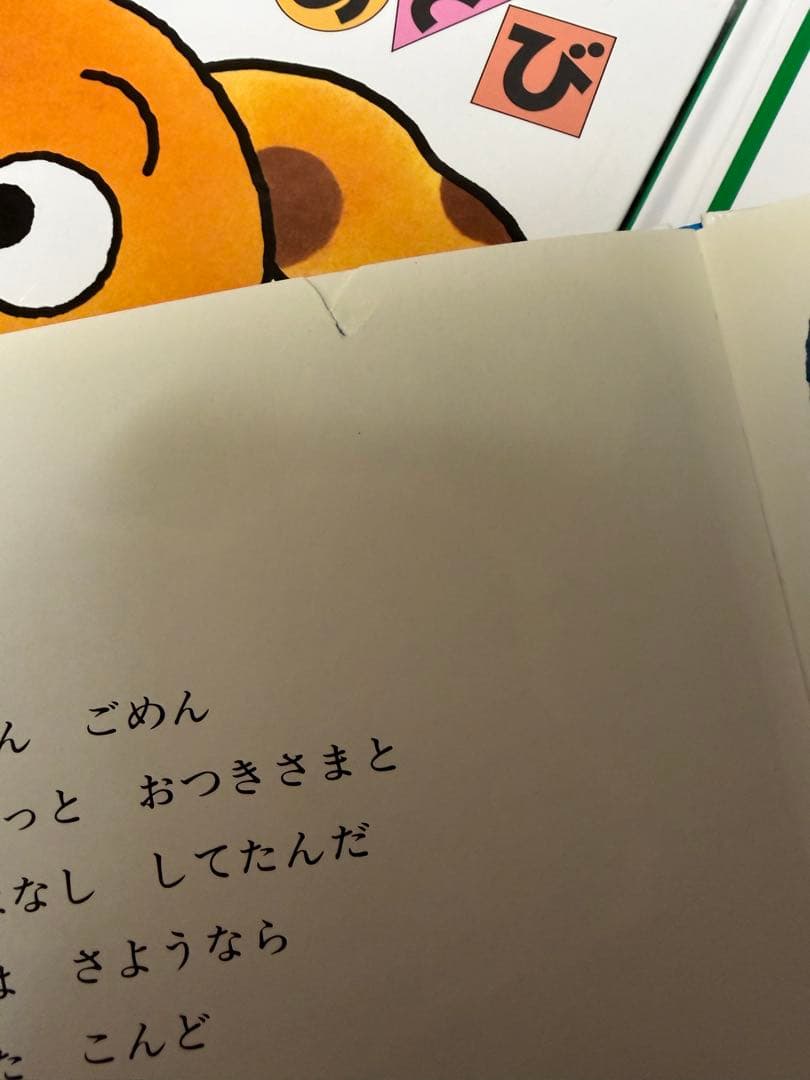 び
ん ごめん
っと おつきさまと
なし してたんだ
は さようなら
た こんど